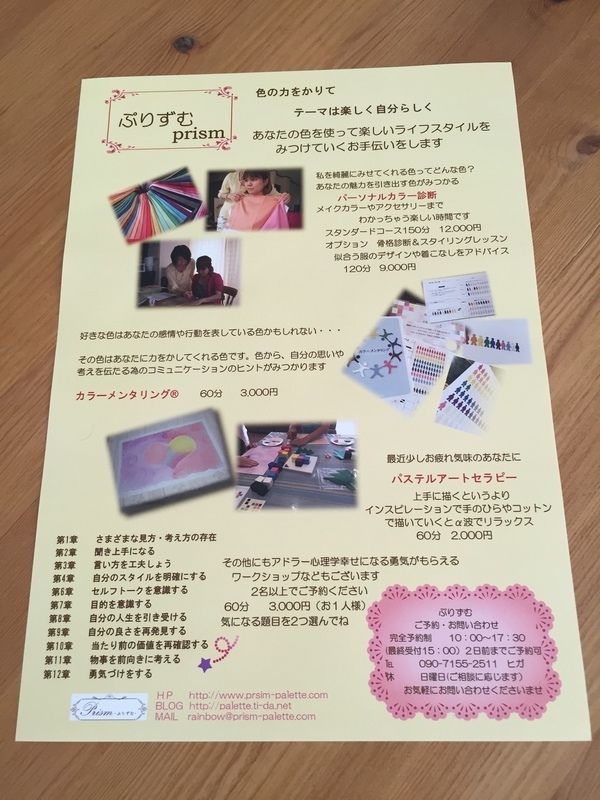 ぷりずむ
prism
色の力をかりて
テーマは楽しく自分らしく
あなたの色を使って楽しいライフスタイルを
みつけていくお手伝いをします
私を綺麗にみせてくれる色ってどんな色？
あなたの魅力を引き出す色がみつかる
パーソナルカラー診断
メイクカラーやアクセサリーまで
わかっちゃう楽しい時間です
スタンダードコース150分　12,000円
オプション　骨格診断＆スタイリングレッスン
似合う服のデザインや着こなしをアドバイス
120分　9,000円
好きな色はあなたの感情や行動を表している色かもしれない・・・
その色はあなたに力をかしてくれる色です。色から、自分の思いや
考えを伝たる為のコミュニケーションのヒントがみつかります
カラーメンタリング®　60分　3,000円
カラーメンタリング
最近少しお疲れ気味のあなたに
パステルアートセラピー
上手に描くというより
インスピレーションで手のひらやコットン
で描いていくとα波でリラックス
60分　2,000円
第1章　さまざまな見方・考え方の存在
第2章　聞き上手になる
第3章　言い方を工夫しよう
第4章　自分のスタイルを明確にする
第6章　セルフトークを意識する
第7章　目的を意識する
第8章　自分の人生を引き受ける
第9章　自分の良さを再発見する
第10章　当たり前の価値を再確認する
第11章　物事を前向きに考える
第12章　勇気づけをする
その他にもアドラー心理学幸せになる勇気がもらえる
ワークショップなどもございます
2名以上でご予約ください
60分　3,000円（お1人様）
気になる題目を2つ選んでね
ぷりずむ
ご予約・お問い合わせ
完全予約制　10：00～17：30
（最終受付15：00）2日前までご予約可
℡　090-7155-2511　ヒガ
休　日曜日（ご相談に応じます）
お気軽にお問い合わせくださいませ
Prism
HP　http://www.prsim-palette.com
BLOG　http://palette.ti-da.net
MAIL　rainbow@prism-palette.com